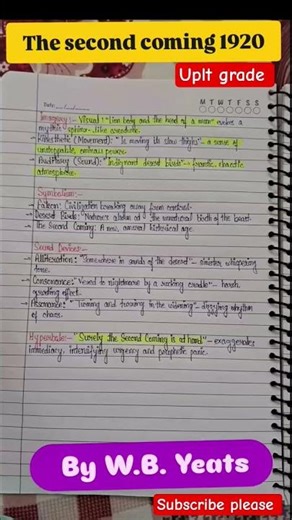 The second coming 1920
Uplt grade
Date:
M T W T F S S
Imagery:- Visual: "Lion body and the head of a man" evokes a
mythic sphinx-like
Kinesthetic (Movement): "Is moving its slow thighs" - a sense of
unstoppable, ominous power.
Auditory (Sound): "Indignant desert birds" - frantic, chaotic
atmosphere.
Symbolism:-
Falcon: Civilization breaking away from control.
Desert Birds: "Nature's alarm at the unnatural birth of the beast.
The Second Coming: A new, historical age.
Sound Devices:-
Alliteration: "Somewhere in sands of the desert" - sinister, whispering
tone.
Consonance: "Vexed to nightmare by a rocking cradle" - harsh,
effect.
Assonance: "Turning and turning in the widening" - dizzying rhythm
of chaos.
Hyperbole:- "Surely the Second Coming is at hand" - exaggerates
immediacy, intensifying urgency and prophetic panic.
By W.B. Yeats
Subscribe please